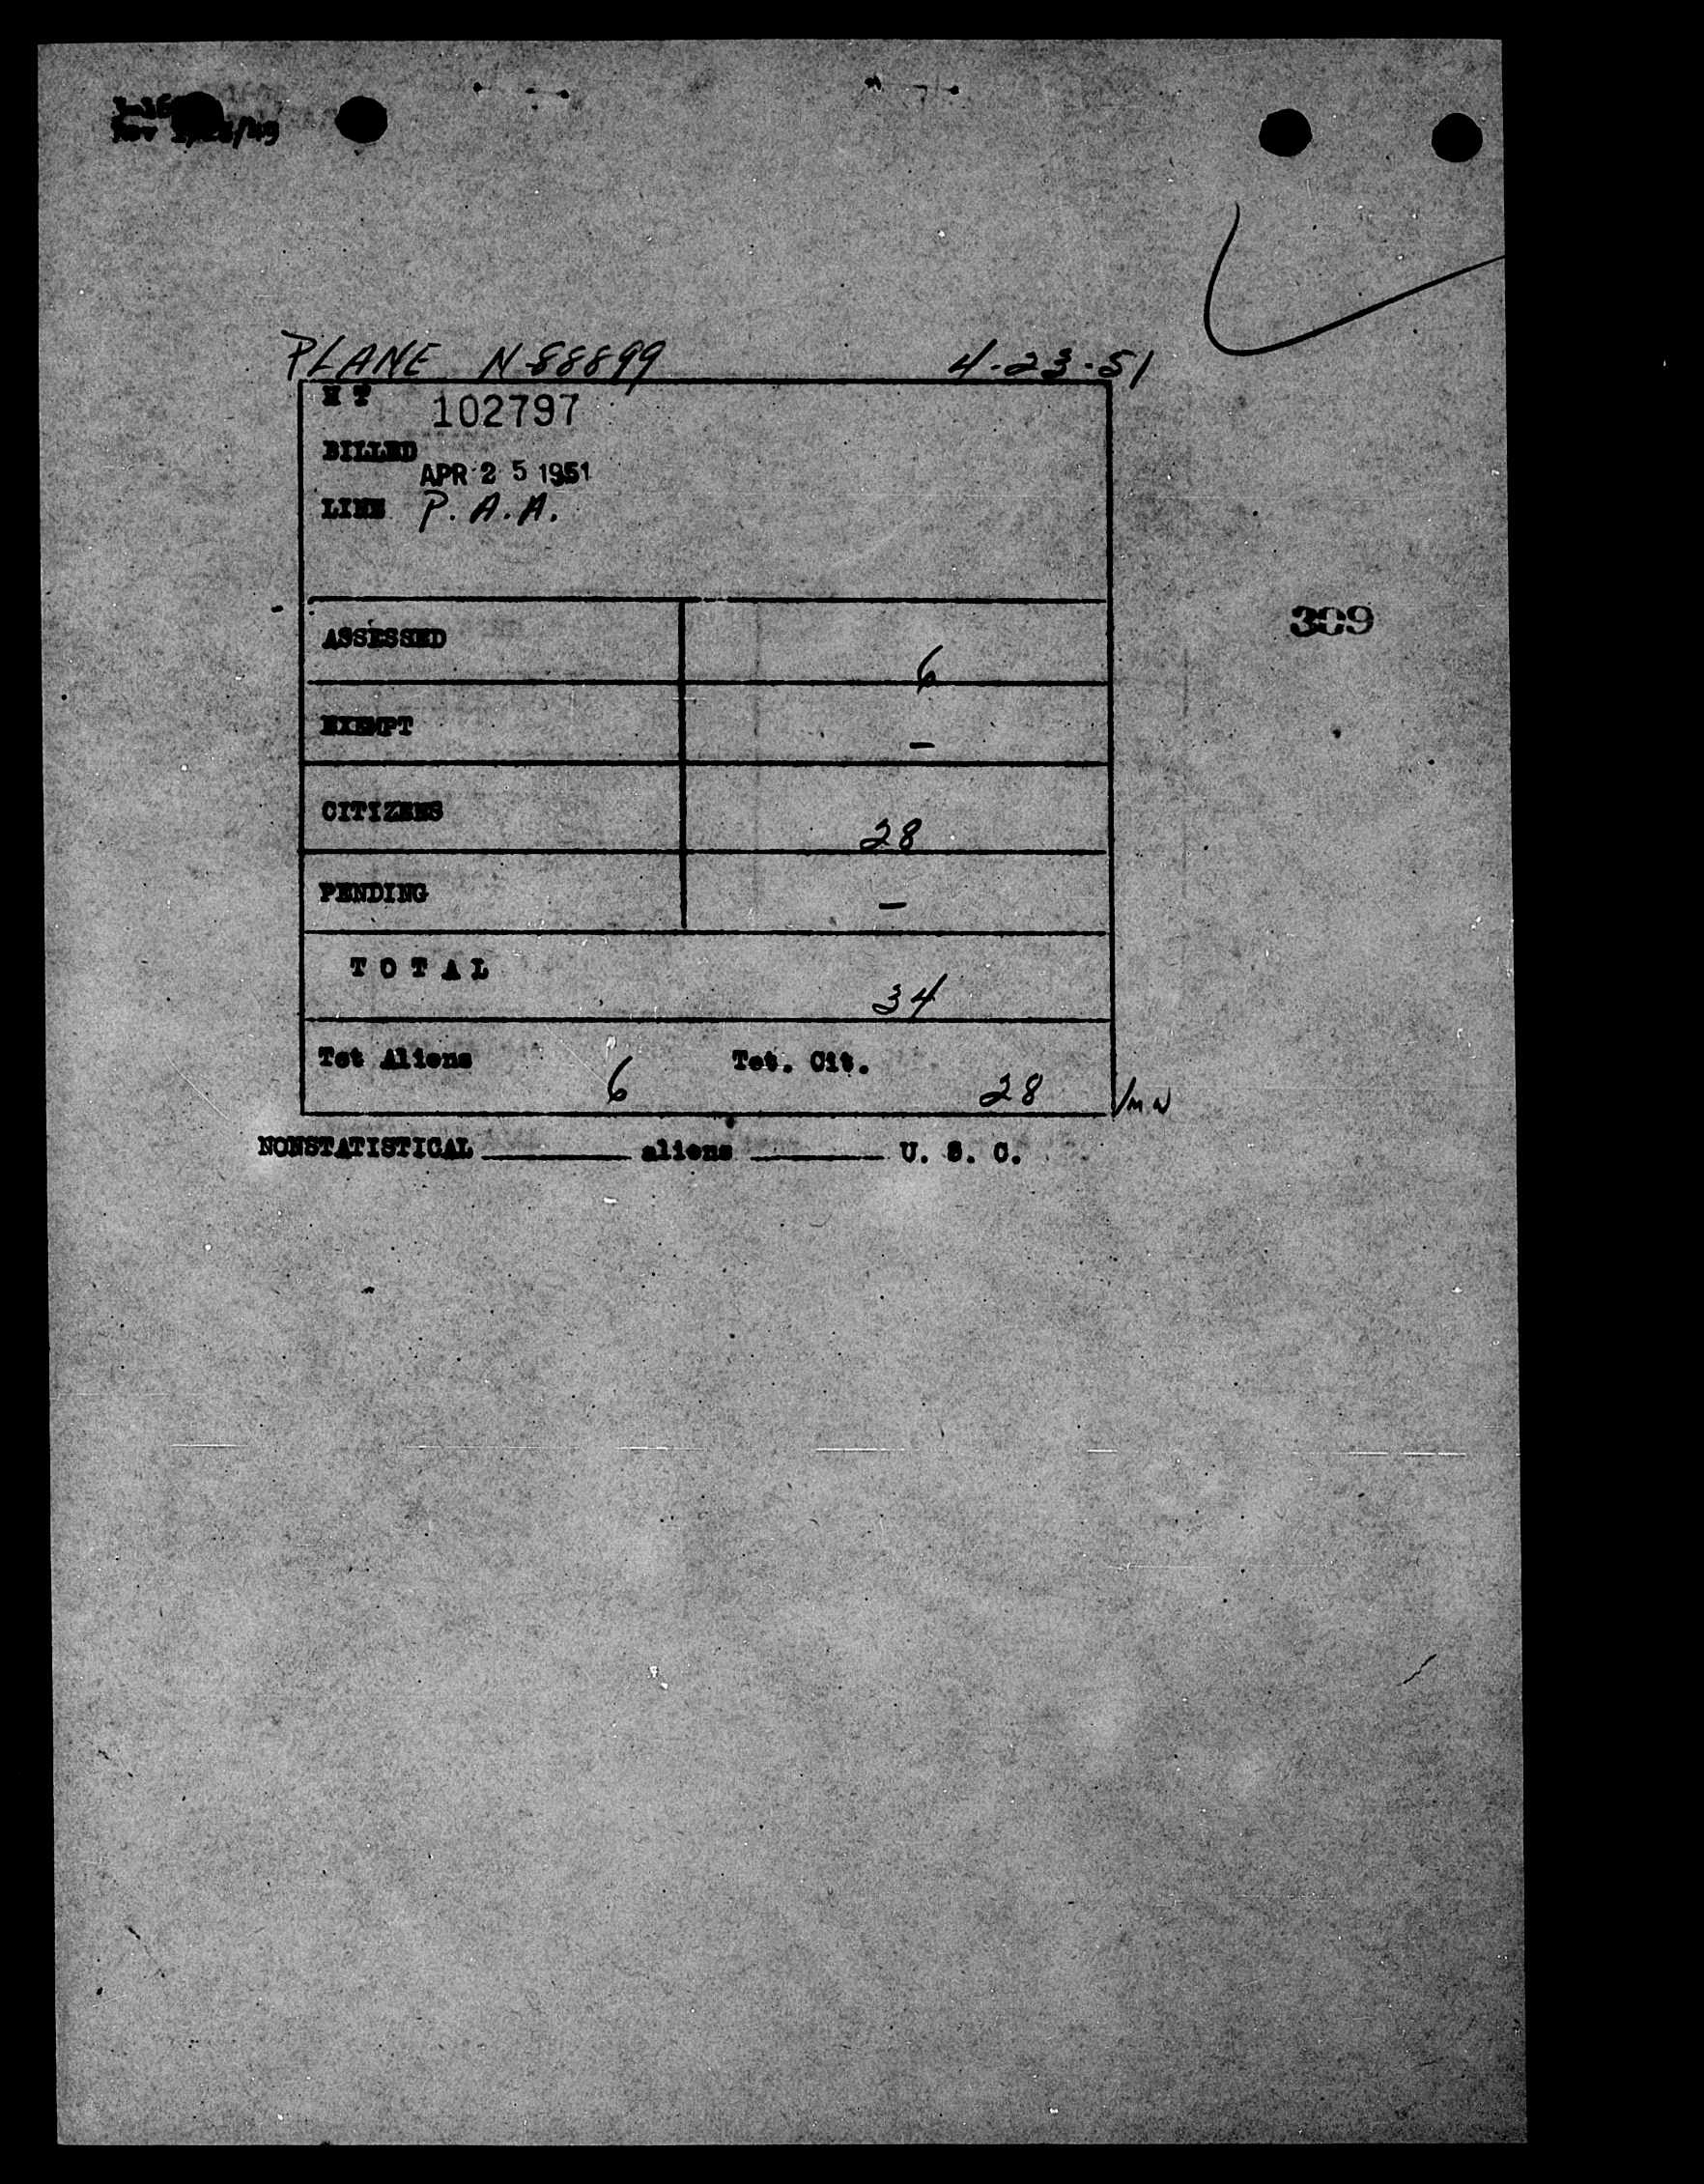 PLANE N-88899 4-23-51
H T 102797
BILLED
APR 25 1951
LINE P. A. A.
309
ASSESSED 6
EXEMPT —
CITIZENS 28
PENDING —
TOTAL 34
Tot Aliens 6 Tot. Cit. 28
NONSTATISTICAL ______ aliens ______ U. S. C.